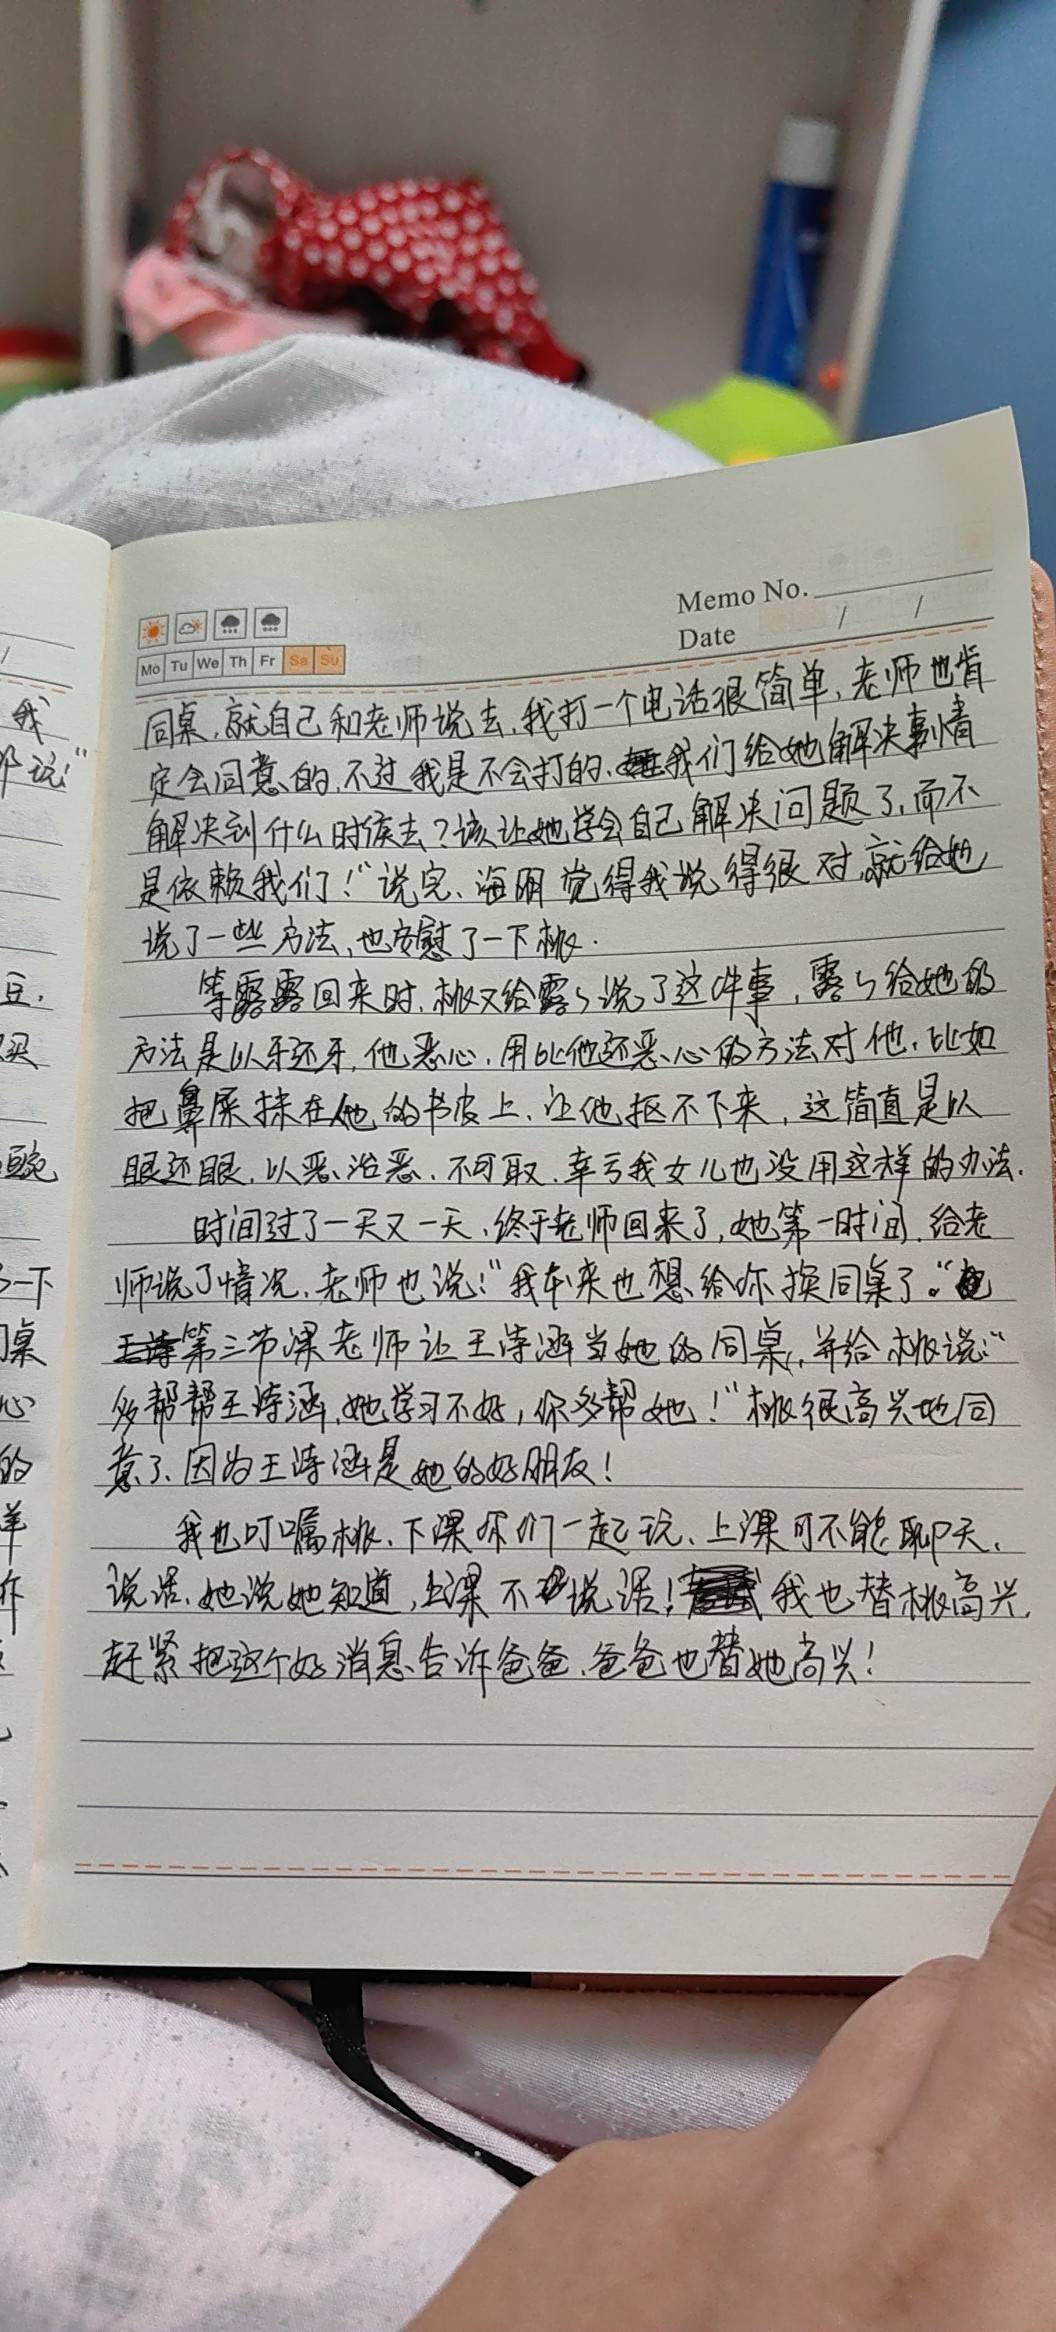 Memo No.
Date / /
Mo Tu We Th Fr Sa Su
同桌,就自己和老师说去,我打一个电话很简单,老师也肯
定会同意的,不过我是不会打的、我们给她解决事情
解决到什么时候去?该让她学会自己解决问题了,而不
是依赖我们!"说完、海明觉得我说得很对,就给她
说了一些方法,也安慰了一下桃.
等露露回来时,桃又给露ㄣ说了这件事,露ㄣ给她的
方法是以牙还牙,他恶心,用比他还恶心的方法对他,比如
把鼻屎抹在他的书皮上,让他抠不下来,这简直是以
眼还眼,以恶治恶、不可取,幸亏我女儿也没用这样的办法.
时间过了一天又一天,终于老师回来了,她第一时间,给老
师说了情况,老师也说:"我本来也想给你换同桌了。"
第三节课老师让王诗涵当她的同桌,并给桃说:"
多帮帮王诗涵,她学习不好,你多帮她!"桃很高兴地同
意了、因为王诗涵是她的好朋友!
我也叮嘱桃、下课你们一起玩、上课可不能聊天,
说话,她说她知道,上课不说话!我也替桃高兴,
赶紧把这个好消息告诉爸爸,爸爸也替她高兴!
我
说:"
豆,
买
豌
一下
同桌
心
的